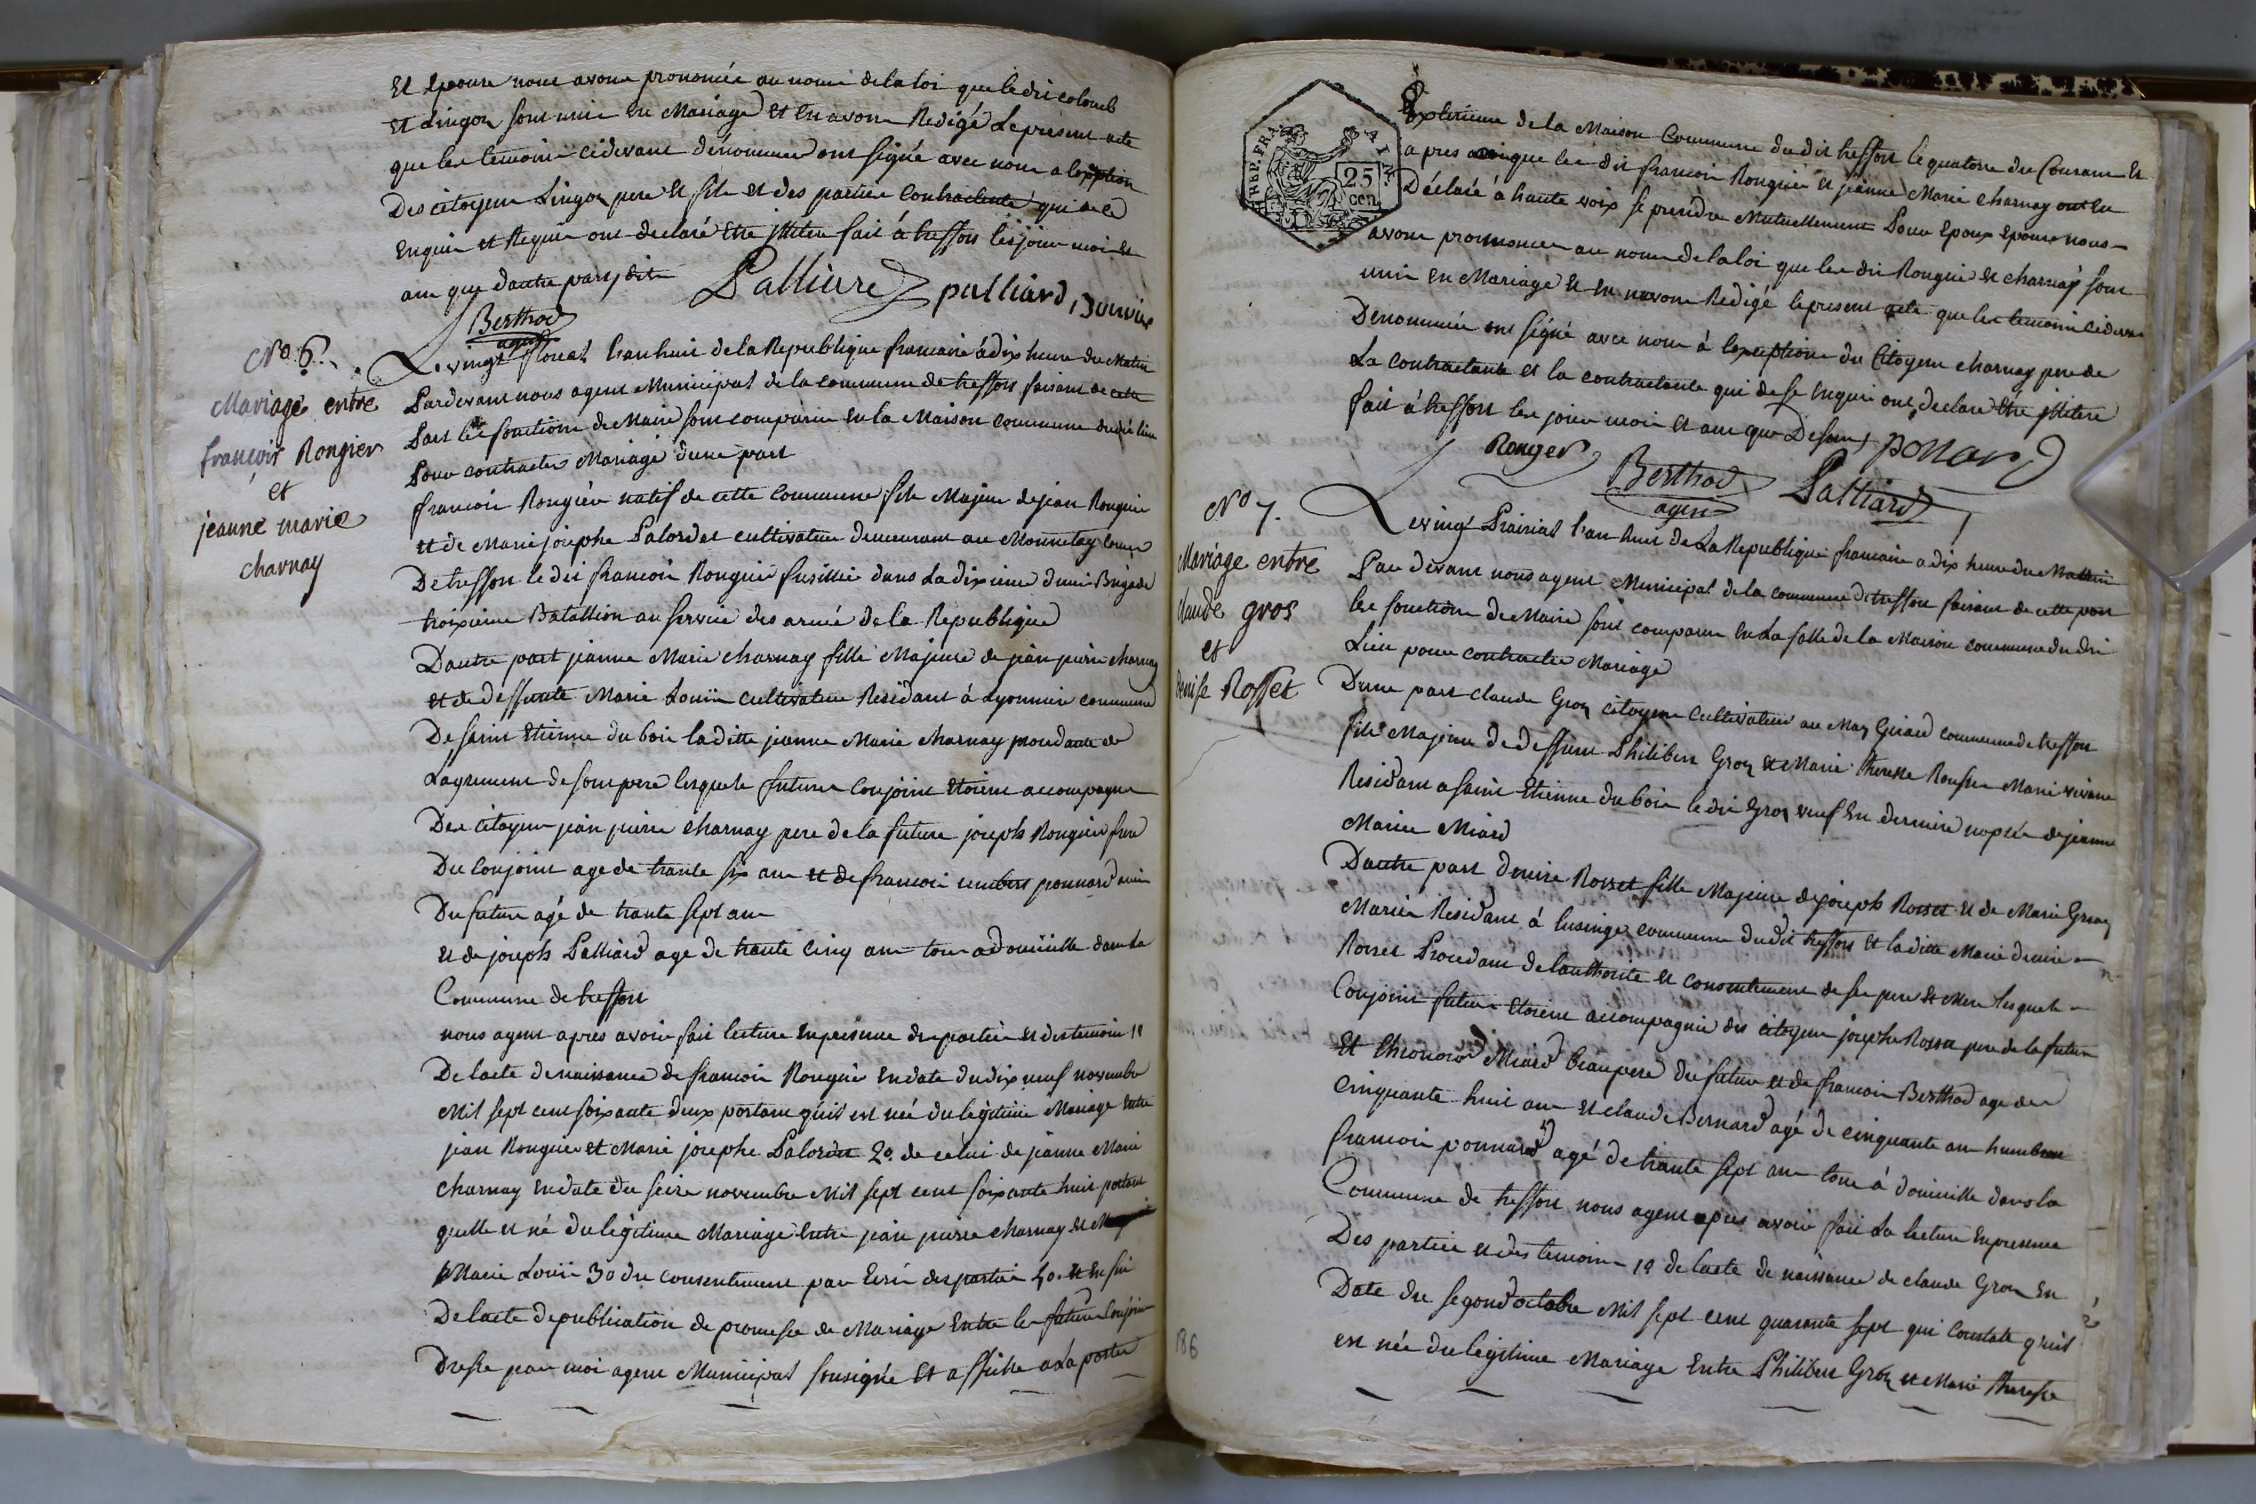 Et Epouse nous avons prononcée au nom de la loi que le dit colomb
et Lingon sont unis en Mariage et en avons Redigé Le present acte
que les temoins cidevant dénommés ont signé avec nous a lexeption
Des citoyens Lingon pere et fils et des parties contractente qui de ce
Enquis et Requis ont declaré Etre illiteré fait á treffort les jour mois et
an que dautre part dit
Palliard palliard, Bouvier
Berthod
agent
No. 6.
Mariage entre
françois Rongier
et
jeanne marie
charnay
Le vingt floreal lan huit de la Republique francaise á dix heure du Matin
Pardevant nous agent Municipal de la commune de treffort faisant de cette
Part les fonctions de Maire sont comparus en la Maison commune dudit lieu
Pour contracter Mariage dune part
francois Rongier natif de cette commune fils Majeur de jean Rongier
et de Marie josephe Palordet cultivateur demeurant au Monnetay comune
De treffort le dit francois Rongier fusillié dans La dixieme demi Brigade
troixieme Batallion au service des armé de la Republique
Dautre part jeanne Marie charnay fille Majeure de jean pierre charnay
et de deffunte Marie Louise cultivatrice Residant á Lyonniere commune
De saint Etienne du bois laditte jeanne Marie charnay procedante de
Lagrement de son pere lesquels futurs conjoint Etoient accompagné
Des citoyen jean pierre charnay pere de la future joseph Rongier frere
Du conjoint age de trante six ans et de francois humbert ponnard ami
Du future agé de trante sept ans
et de joseph Palliard age de trante cinq ans tous a domicille dans la
Commune de treffort
nous agent apres avoir fait lecture En presence des parties et des temoin 1º
De lacte de naissance de francois Rongier en date du dix neuf novembre
Mil sept cent soixante deux portant quil est né du legitime Mariage Entre
jean Rongier et Marie josephe Palordet 2º. de celui de jeanne Marie
charnay en date du seize novembre Mil sept cent soixante huit portant
quelle et né du legitime Mariage Entre jean pierre charnay et
Marie Louise 3º du consentement par Ecrit des parties 4º. et En fin
De lacte de publication de promesse de Mariage Entre les futurs Conjoint
Dressé par moi agent Municipal sousigné et affiché a La porte
REP. FRA.
AIN.
25
cen.
Exterieure de la Maison Commune du dit treffort le quatorze du Courant Et
apres que les dit francois Rongier et jeanne Marie charnay ont Eu
Déclaré á haute voix se prendre Mutuellement Pour Epoux Epouse nous
avons prononcer au nom de la loi que les dit Rongier et charnay sont
unis en Mariage Et en avons Redigé le present acte que les temoins cidevant
Denommée ont signé avec nous á lexeption du Citoyen charnay pere de
La contractante et la contractante qui de se Enquis ont declaré Etre illiteré
fait á treffort les jour mois et an que Dessus ponard
Ronger
Berthod
agent
Palliard
No 7.
Mariage entre
claude gros
et
denise Rosset
Le vingt Prairial l'an huit de La Republique francaise a dix heure du Mattin
Par devant nous agent Municipal de la commune de treffort faisant de cette part
les fonctions de Maire sont comparus En La salle de la Maison commune du dit
Lieu pour contracter Mariage
Dune part claude Gros citoyen cultivateur au Mas Girard commune de treffort
fils Majeur de deffunt Philibert Gros et Marie therese Marie vivante
Residant a saint Etienne du bois le dit Gros veuf en derniere noptée de jeanne
Marie Miard
Dautre part denise Rosset fille Majeure de joseph Rosset et de Marie Gros
Mariée Residant á lusinge commune du dit treffort et laditte Marie denise
Rosset Procedant de lauthorité et consentement de ses pere et Mere lesquels
Conjoint futurs Etoient accompagnié des citoyen josephe Rosset pere de la future
Et Miard beaupere du future et de francois Berthod age de
Cinquante huit ans et claude Bernard agé de cinquante an humbert
francois ponnard agé de trante sept ans tous á domicille dans la
Commune de treffort nous agent apres avoir fait La lecture En presence
Des parties et des temoins 1º de lacte de naissance de claude Gros En
Date du segond octobre Mil sept cent quarante sept qui Constate quil
est née du legitime Mariage Entre Philibert Gros et Marie therese
186